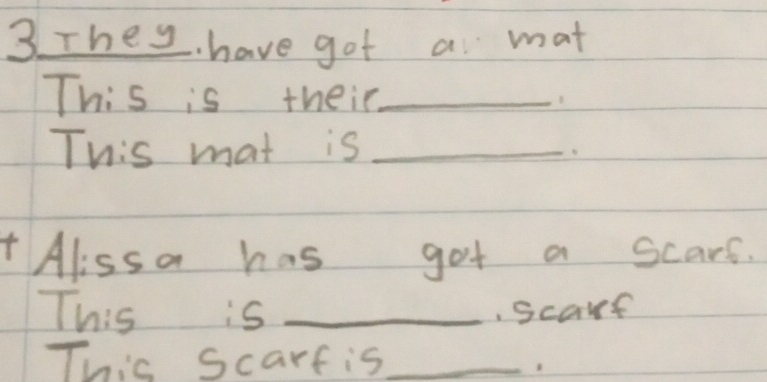 3 They. have got a mat
This is their ________.
This mat is ________.
Alissa has got a scarf.
This is ________. scarf
This scarf is ______.